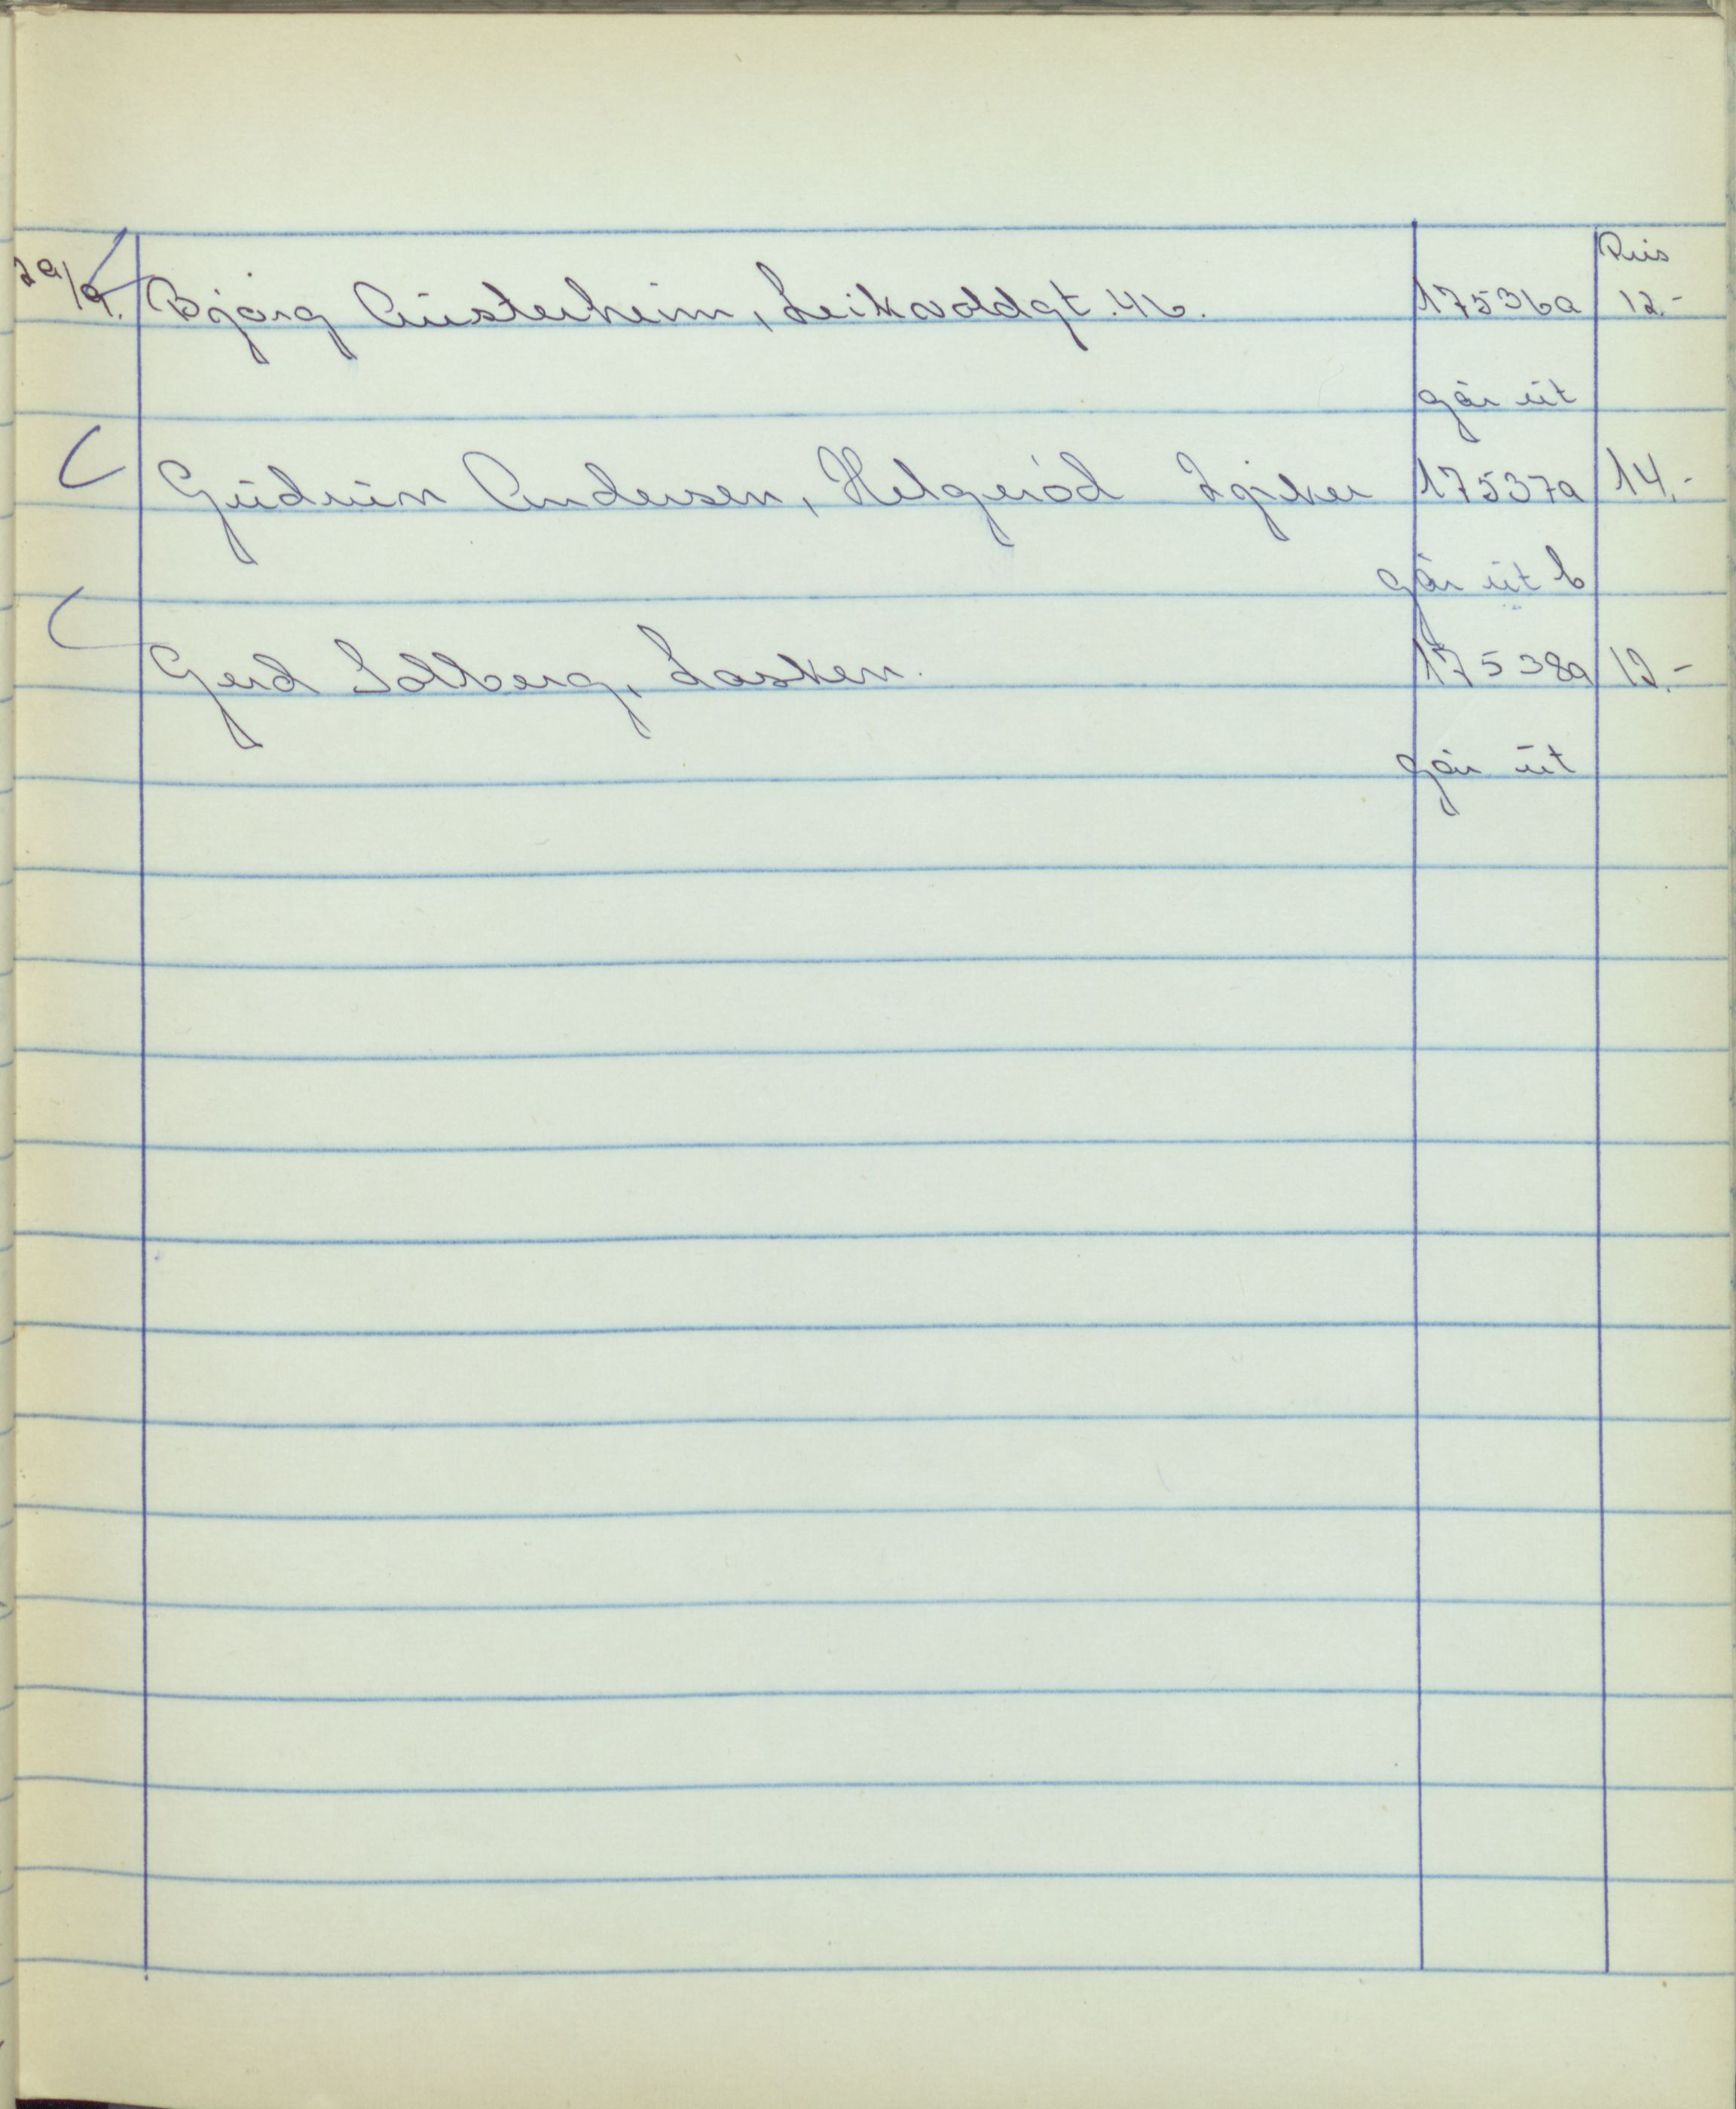 Pris
29/9. Bjørg Austerheim, Leikvoldgt. 46. 17536a 12.-
går ut
Gudrun Andersen, Helgerød 17537a 14.-
går ut b
Gerd Solberg, Lasken. 17538a 12.-
går ut